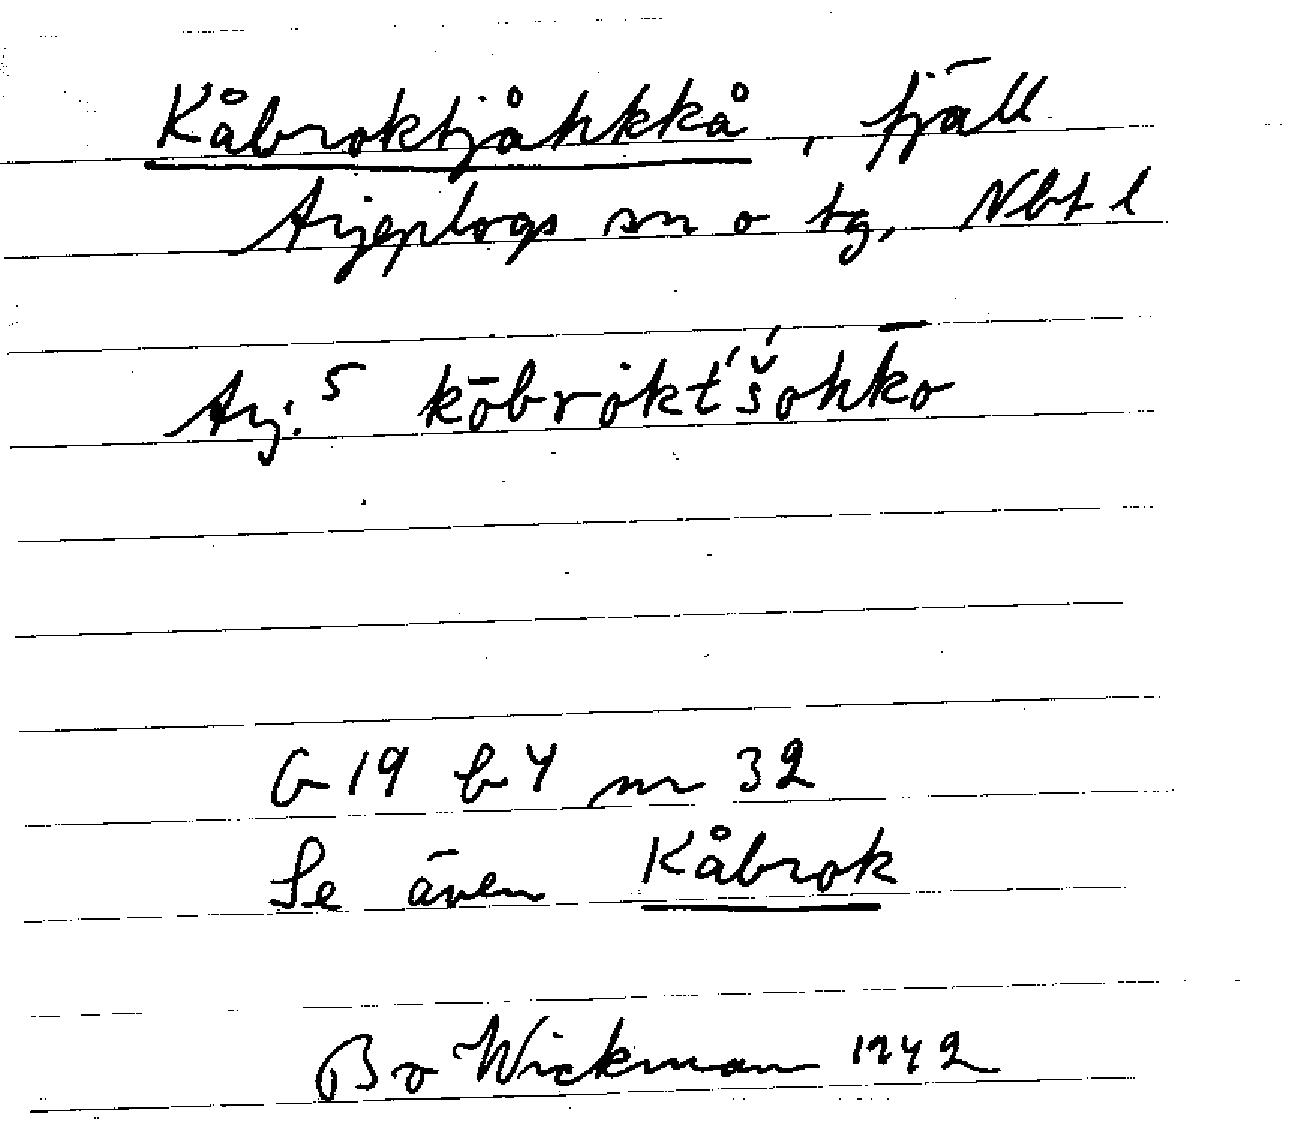 Kåbroktjåhkkå, fjäll
Arjeplogs sn o tg, Nbt l
Arj.⁵ kōbrokt́š́ohk̄o
G 19 b 4 nr 32
Se även Kåbrok
Bo Wickman 1942